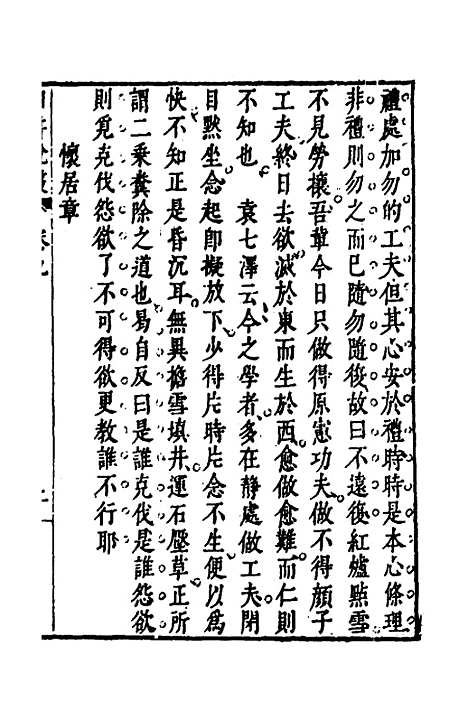 禮處加勿的工夫但其心安於禮時時是本心條理
非禮則勿之而已隨勿隨復故曰不遠復紅爐點雪
不見勞攘吾輩今日只做得原憲功夫做不得顏子
工夫終日去欲滅於東而生於西愈做愈難而仁則
不知也　袁七澤云今之學者多在靜處做工夫閉
目默坐念起卽擬放下少得片時片念不生便以爲
快不知正是昏沉耳無異擔雪填井運石壓草正所
謂二乗糞除之道也曷自反曰是誰克伐是誰怨欲
則覓克伐怨欲了不可得欲更教誰不行耶
懷居章